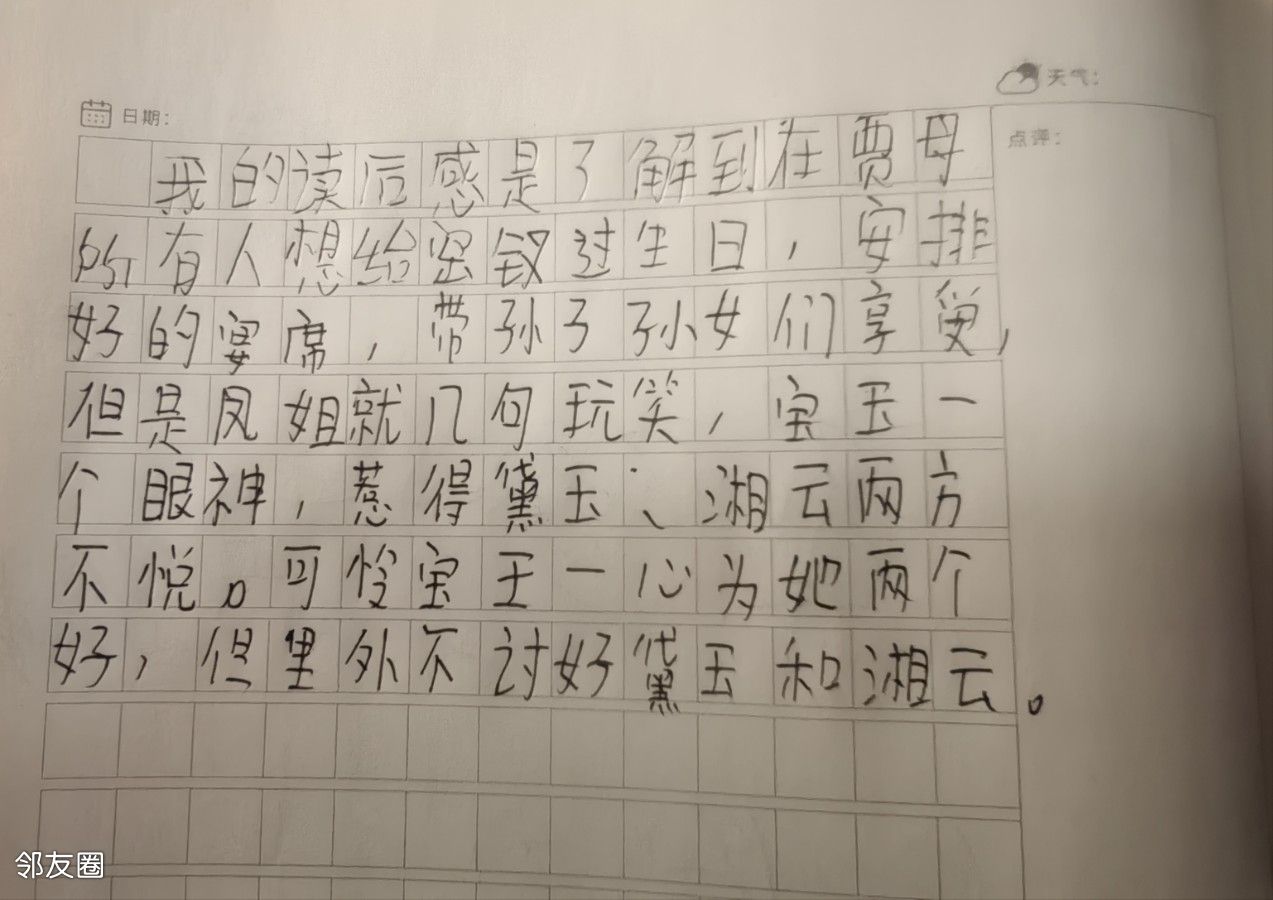 日期：
天气：
点评：
我的读后感是了解到在贾母
所有人想给宝钗过生日，安排
好的宴席，带孙子孙女们享受，
但是凤姐就几句玩笑，宝玉一
个眼神，惹得黛玉、湘云两方
不悦。可怜宝王一心为她两个
好，但里外不讨好黛玉和湘云。
邻友圈